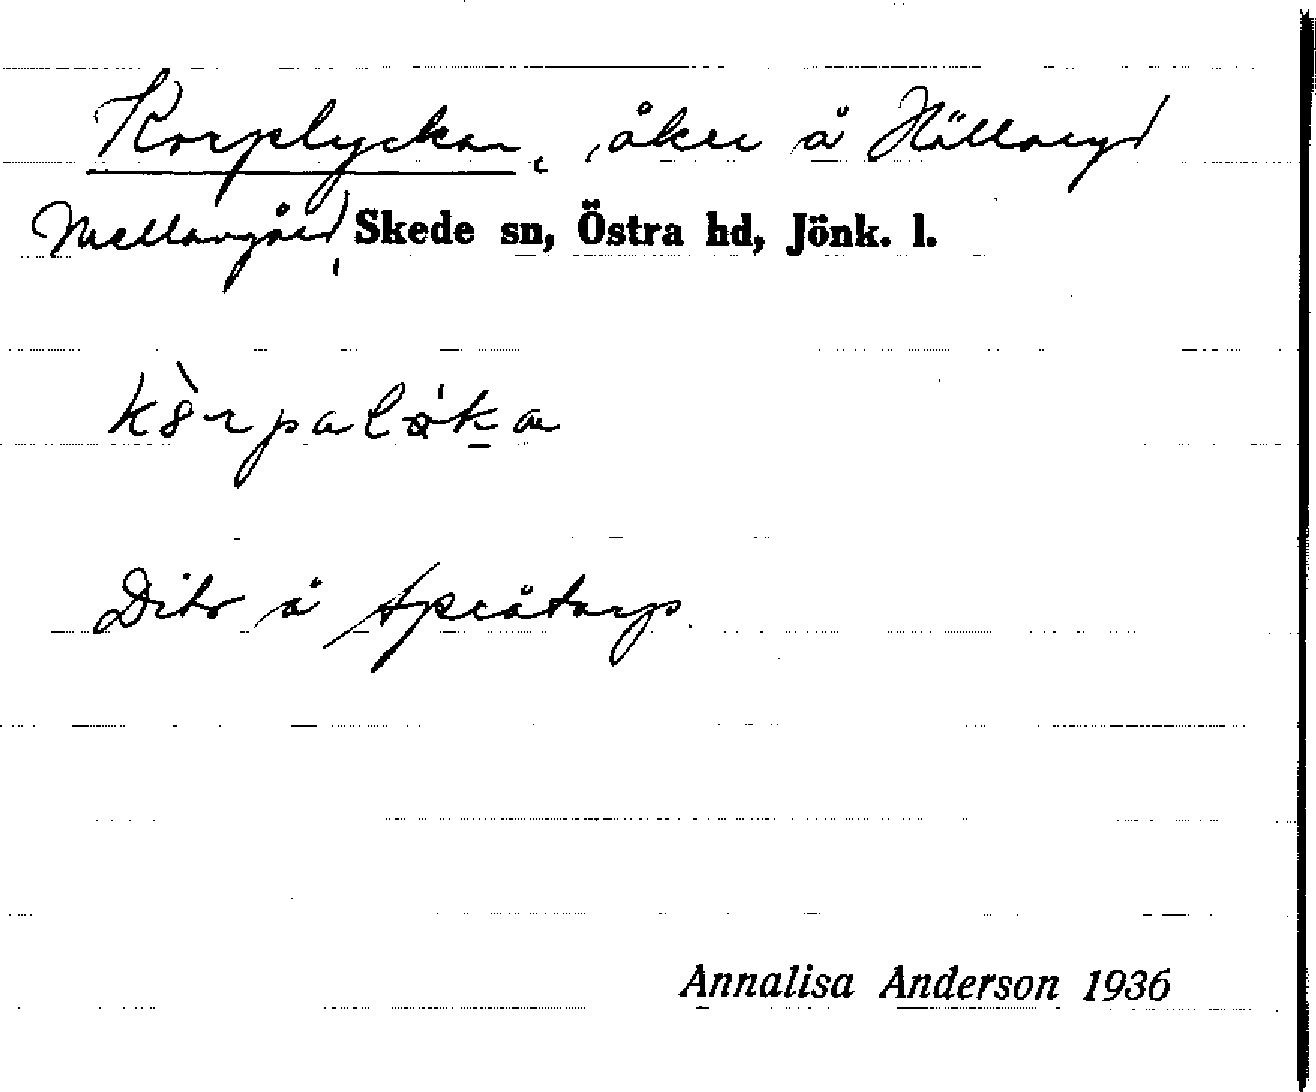 Korplyckan, åker å Hällaryd
Mellangård, Skede sn, Östra hd, Jönk. l.
Dito å Språtorp.
Annalisa Anderson 1936